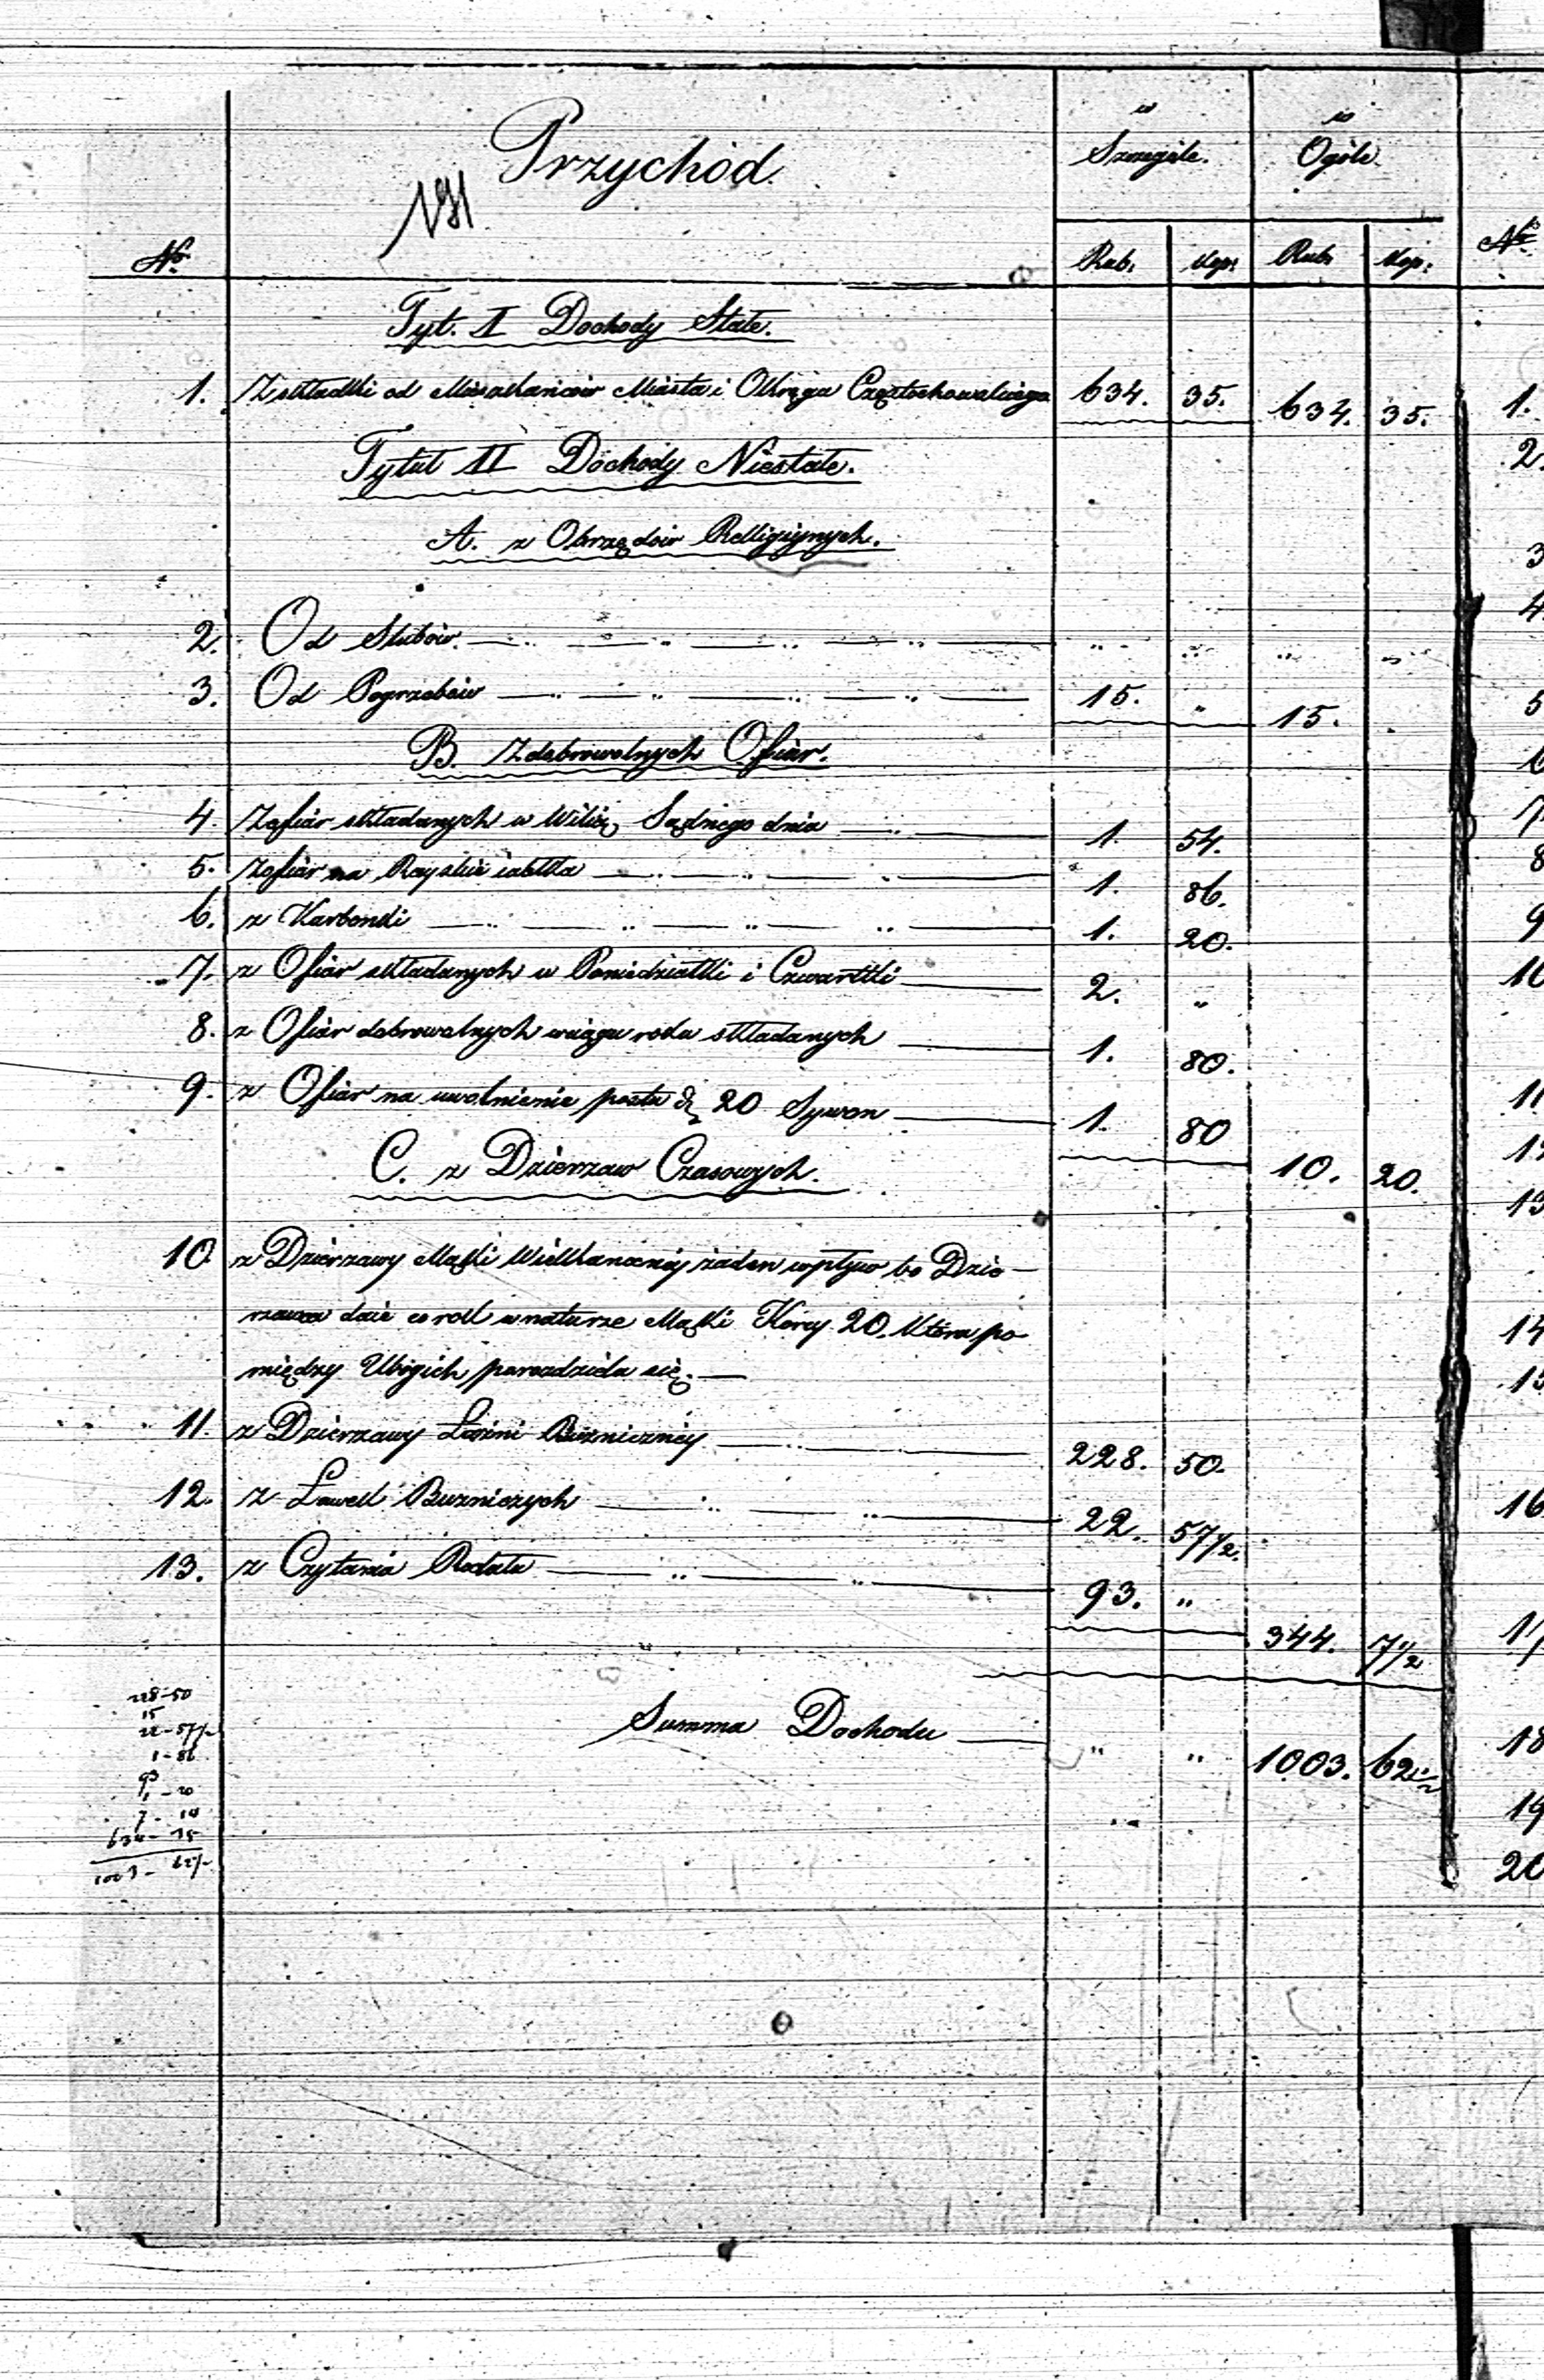 Przychód.
w Szczególe.
w Ogóle
191
No.
Rub.
Kop.
Rub.
Kop.
No.
Tyt. I Dochody Stałe.
1. Z składki od Mieszkańców Miasta i Okręgu Częstochowskiego 634. 35. 634. 35.
Tytuł II Dochody Niestałe.
A. z Obrzędów Relligijnych.
2. Od Slubów. — „ — „ — „ — „ — „ „ „ „
3. Od Pogrzebów — „ — „ — „ — „ — 15. „ 15.
B. Z dobrowolnych Ofiar.
4. Z ofiar składanych w Wilią Sądnego dnia — „ — 1. 54.
5. Z ofiar na Rayskie iabłka — „ — „ — 1. 86.
6. z Karbonki — „ — „ — „ — „ — 1. 20.
7. z Ofiar składanych w Poniedziałki i Czwartki — 2. „
8. z Ofiar dobrowolnych wciągu roku składanych — 1. 80.
9. z Ofiar na uwolnienie postu d. 20 Sywon — 1. 80
10. 20.
C. z Dzierzaw Czasowych.
10. z Dzierzawy Mąki Wielkanocnéj żaden wpływ bo Dzie-
rzawca daie co rok w naturze Mąki Korcy 20. która po-
między Ubogich porozdziela się. —
11. z Dzierzawy Łaźni Buzniczney — „ — 228. 50.
12. z Ławek Buzniczych — „ — „ — 22. 57½.
13. z Czytania Rodału — „ — „ — 93. „
344. 7½
Summa Dochodu — „ „ 1003. 62½
228-50
15
22-57½
1-86
93
1-20
7-14
634-35
1003-62½
1.
2.
3
4.
5
6
7
8
9
10
11
12
13
14
15
16
17
18
19
20